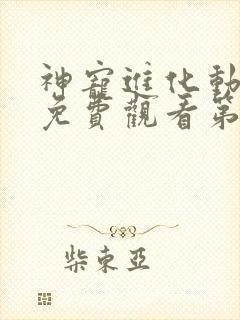 神寵進化動
免費觀看第
柴東亞